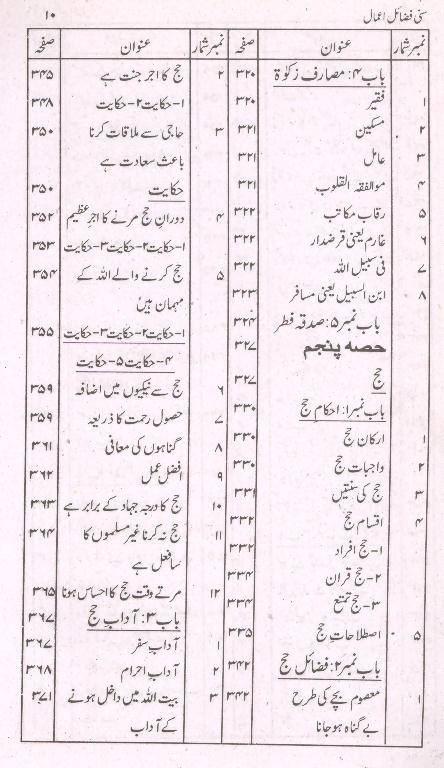 سنی فضائل اعمال ۱۰
نمبر شمار عنوان صفحہ
باب ۴: مصارف زکوٰۃ ۳۲۰
۱ فقیر ۳۲۰
۲ مسکین ۳۲۱
۳ عامل ۳۲۱
۴ موالفقہ القلوب ۳۲۱
۵ رقاب مکاتب ۳۲۲
۶ غارم یعنی قرضدار ۳۲۲
۷ فی سبیل اللہ ۳۲۲
۸ ابن السبیل یعنی مسافر ۳۲۳
باب نمبر ۵: صدقہ فطر ۳۲۴
حصہ پنجم ۳۲۷
حج ۳۲۷
باب نمبر۱: احکام حج ۳۳۰
۱ ارکان حج ۳۳۰
۲ واجبات حج ۳۳۰
۳ حج کی سنتیں ۳۳۱
۴ اقسام حج ۳۳۲
۱-حج افراد ۳۳۲
۲-حج قران ۳۳۴
۳-حج تمتع ۳۳۴
۵ اصطلاحات حج ۳۳۵
باب نمبر۲: فضائل حج ۳۴۲
۱ معصوم بچے کی طرح ۳۴۲
بے گناہ ہو جانا
نمبر شمار عنوان صفحہ
۲ حج کا اجر جنت ہے ۳۴۵
۱-حکایت ۲-حکایت ۳۴۸
۳ حاجی سے ملاقات کرنا ۳۵۰
باعث سعادت ہے
حکایت ۳۵۰
۴ دوران حج مرنے کا اجر عظیم ۳۵۲
۱-حکایت ۲-حکایت ۳-حکایت ۳۵۳
۵ حج کرنے والے اللہ کے ۳۵۴
مہمان ہیں
۱-حکایت ۲-حکایت ۳-حکایت ۳۵۵
۴-حکایت ۵-حکایت
۶ حج سے نیکیوں میں اضافہ ۳۵۹
۷ حصول رحمت کا ذریعہ ۳۵۹
۸ گناہوں کی معافی ۳۶۱
۹ افضل عمل ۳۶۲
۱۰ حج کا درجہ جہاد کے برابر ہے ۳۶۳
۱۱ حج نہ کرنا غیر مسلموں کا ۳۶۴
سا فعل ہے
۱۲ مرتے وقت حج کا احساس ہونا ۳۶۵
باب ۳: آداب حج ۳۶۷
۱ آداب سفر ۳۶۷
۲ آداب احرام ۳۶۸
۳ بیت اللہ میں داخل ہونے ۳۷۱
کے آداب